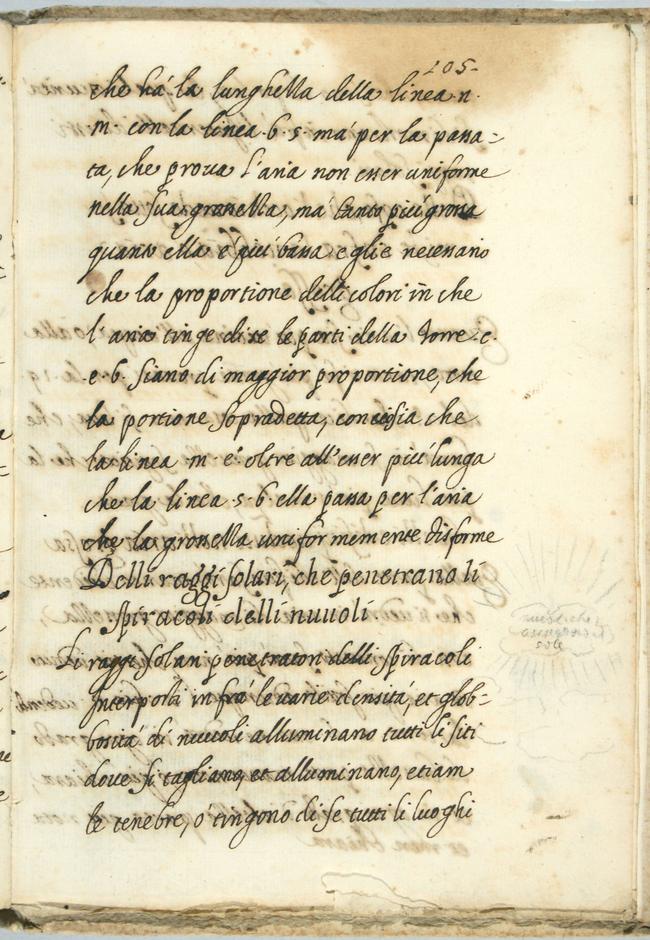 105.
che há la lunghezza della linea n.
m. con la linea b. s. má per la passa=
ta, che prova l'aria non esser uniforme
nella sua grossezza, má tanto piú grossa
quanto ella é piú bassa eglie necessario
che la proportione delli colori in che
l'aria tinge di se le parti della Torre. c.
e b. siano di maggior proportione, che
la portione sopradetta, conciosia che
la linea m. é oltre all'esser piú lunga
che la linea s. b. ella passa per l'aria
che la grossezza uniformemente disforme
Delli raggi solari, che penetrano li
spiracoli delli nuvoli.
Li raggi solari penetratori delli spiracoli
interposti infrá le varie densitá, et glob=
bositá di nuvoli alluminano tutti li siti
dove si tagliano, et alluminano, etiam
le tenebre, ó tingono di se tutti li luoghi
sole